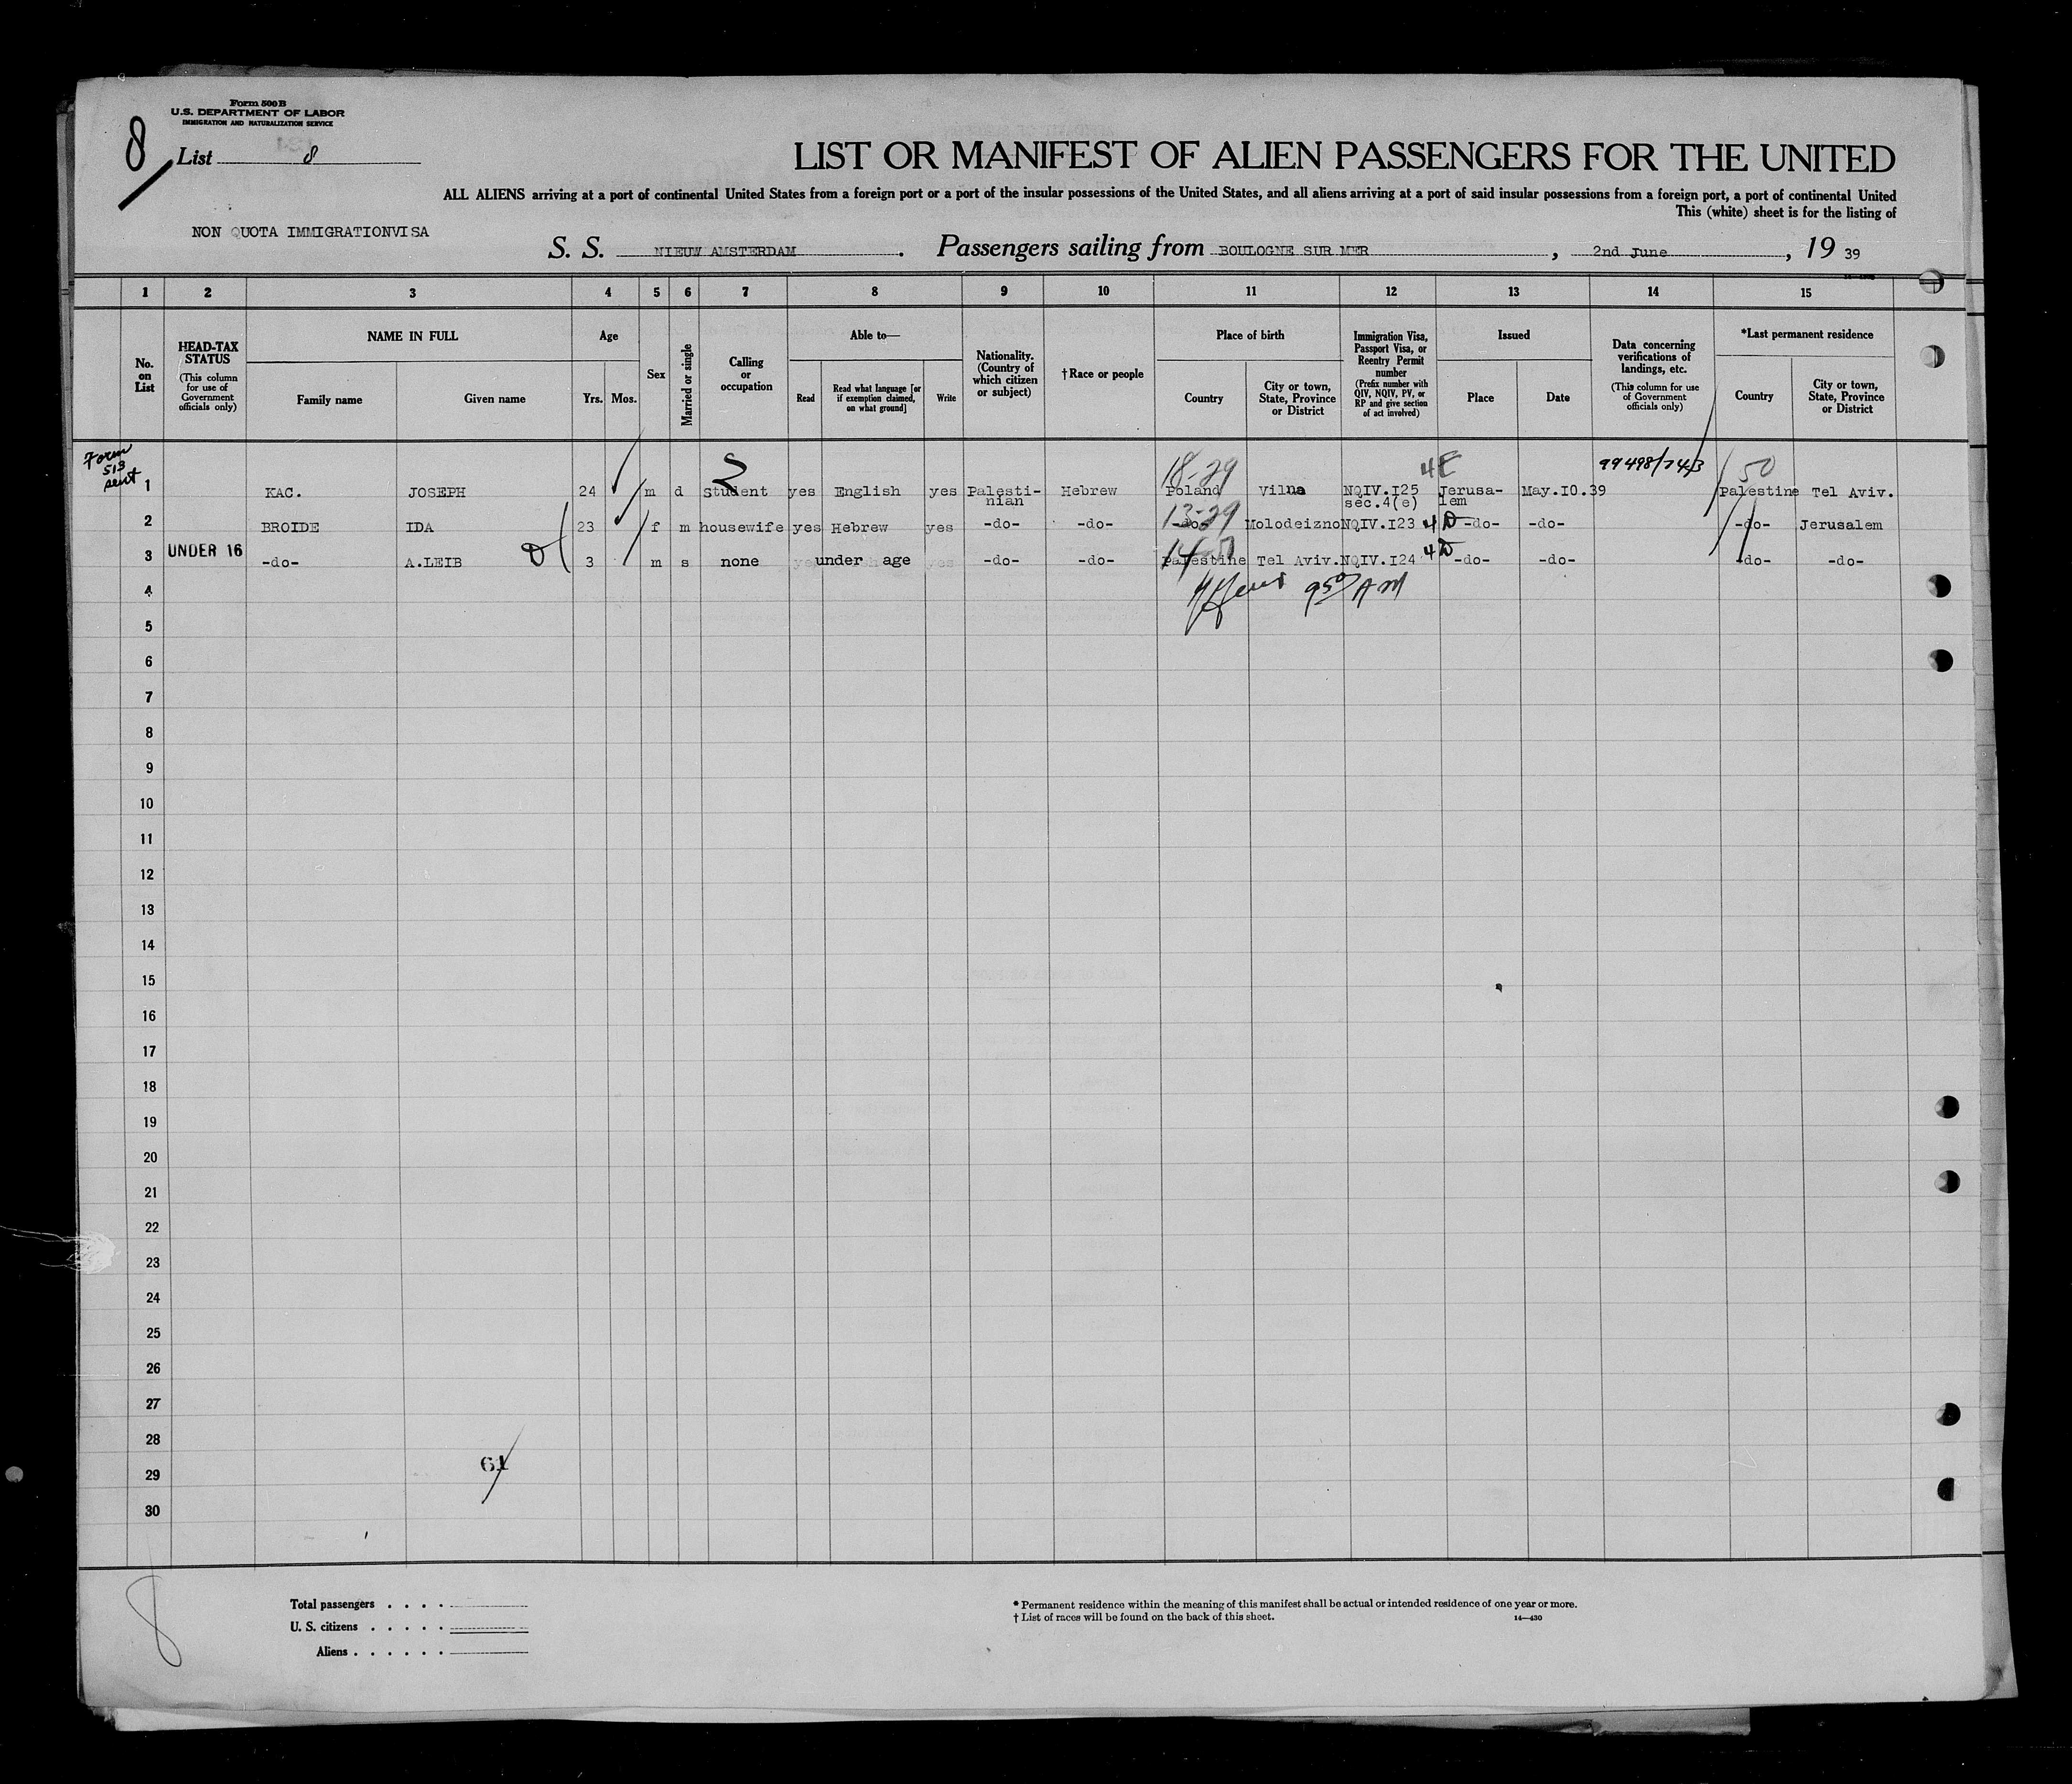 Form 500 B
U.S. DEPARTMENT OF LABOR
IMMIGRATION AND NATURALIZATION SERVICE
8
List 8
LIST OR MANIFEST OF ALIEN PASSENGERS FOR THE UNITED
ALL ALIENS arriving at a port of continental United States from a foreign port or a port of the insular possessions of the United States, and all aliens arriving at a port of said insular possessions from a foreign port, a port of continental United
This (white) sheet is for the listing of
NON QUOTA IMMIGRATIONVISA
S. S. NIEUW AMSTERDAM. Passengers sailing from BOULOGNE SUR MER, 2nd June, 19 39
1 2 3 4 5 6 7 8 9 10 11 12 13 14 15
No. on List
HEAD-TAX STATUS (This column for use of Government officials only)
NAME IN FULL
Family name Given name
Age
Yrs. Mos.
Sex
Married or single
Calling or occupation
Able to—
Read Read what language [or if exemption claimed, on what ground] Write
Nationality. (Country of which citizen or subject)
†Race or people
Place of birth
Country City or town, State, Province or District
Immigration Visa, Passport Visa, or Reentry Permit number (Prefix number with QIV, NQIV, PV, or RP and give section of act involved)
Issued
Place Date
Data concerning verifications of landings, etc. (This column for use of Government officials only)
*Last permanent residence
Country City or town, State, Province or District
Form 513 sent
S 18-29 4E 99498/743 50
1 KAC. JOSEPH 24 m d student yes English yes Palesti-nian Hebrew Poland Vilna NQIV.I25 sec.4(e) Jerusa-lem May.I0.39 Palestine Tel Aviv.
13-29
2 BROIDE IDA 23 f m housewife yes Hebrew yes -do- -do- -do- Molodeizno NQIV.I23 4D -do- -do- -do- Jerusalem
3 UNDER 16 -do- A.LEIB D 3 m s none under age -do- -do- Palestine Tel Aviv. NQIV.I24 4D -do- -do- -do- -do-
950 AM
4
5
6
7
8
9
10
11
12
13
14
15
16
17
18
19
20
21
22
23
24
25
26
27
28
29
30
61
8
Total passengers . . . .
U. S. citizens . . . . .
Aliens . . . . . .
* Permanent residence within the meaning of this manifest shall be actual or intended residence of one year or more.
† List of races will be found on the back of this sheet.
14—430